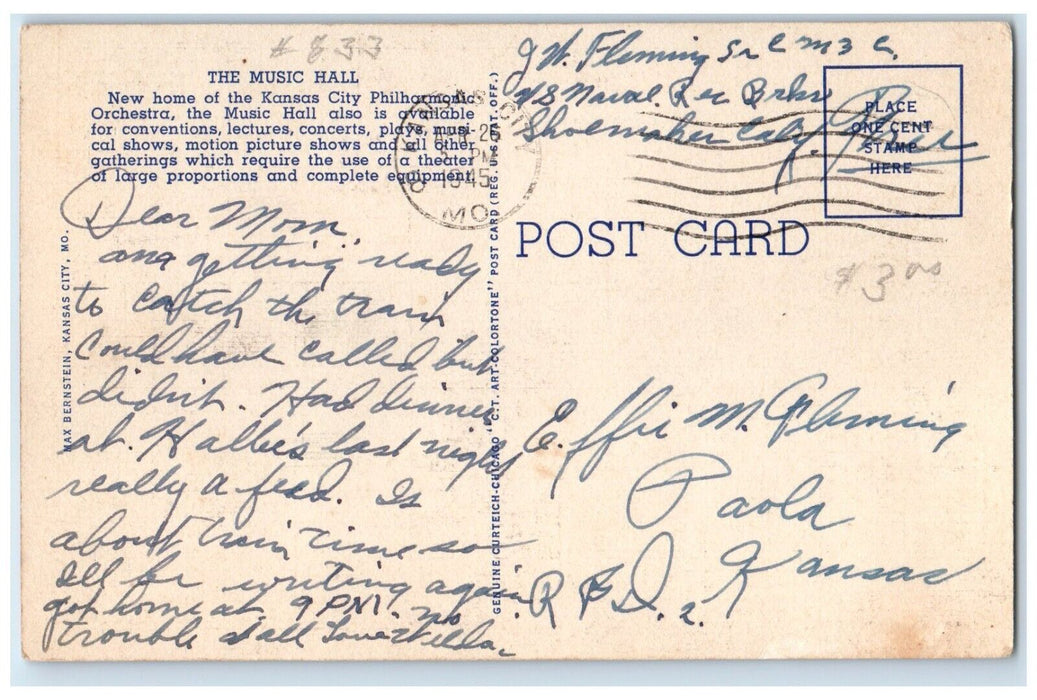 # 833
THE MUSIC HALL
New home of the Kansas City Philharmonic
Orchestra, the Music Hall also is available
for conventions, lectures, concerts, plays, musi-
cal shows, motion picture shows and all other
gatherings which require the use of a theater
of large proportions and complete equipment.
Dear Mom,
am getting ready
to catch the train
Could have called but
didn't. Had dinner
at Hallie's last night
really a feed. Is
about train time so
Ill be writing again
got home at 9 PM. no
trouble at all Love
MAX BERNSTEIN, KANSAS CITY, MO.
GENUINE CURTEICH-CHICAGO "C.T. ART-COLORTONE" POST CARD (REG. U.S. PAT. OFF.)
KANSAS CITY
APR 26
PM
1945
MO
J W. Fleming Sr C M 3 C
US Naval Rec
Shoemaker Calif. Free
PLACE
ONE CENT
STAMP
HERE
POST CARD
$3.00
Effie M. Fleming
Paola
Kansas
R F D. 2.